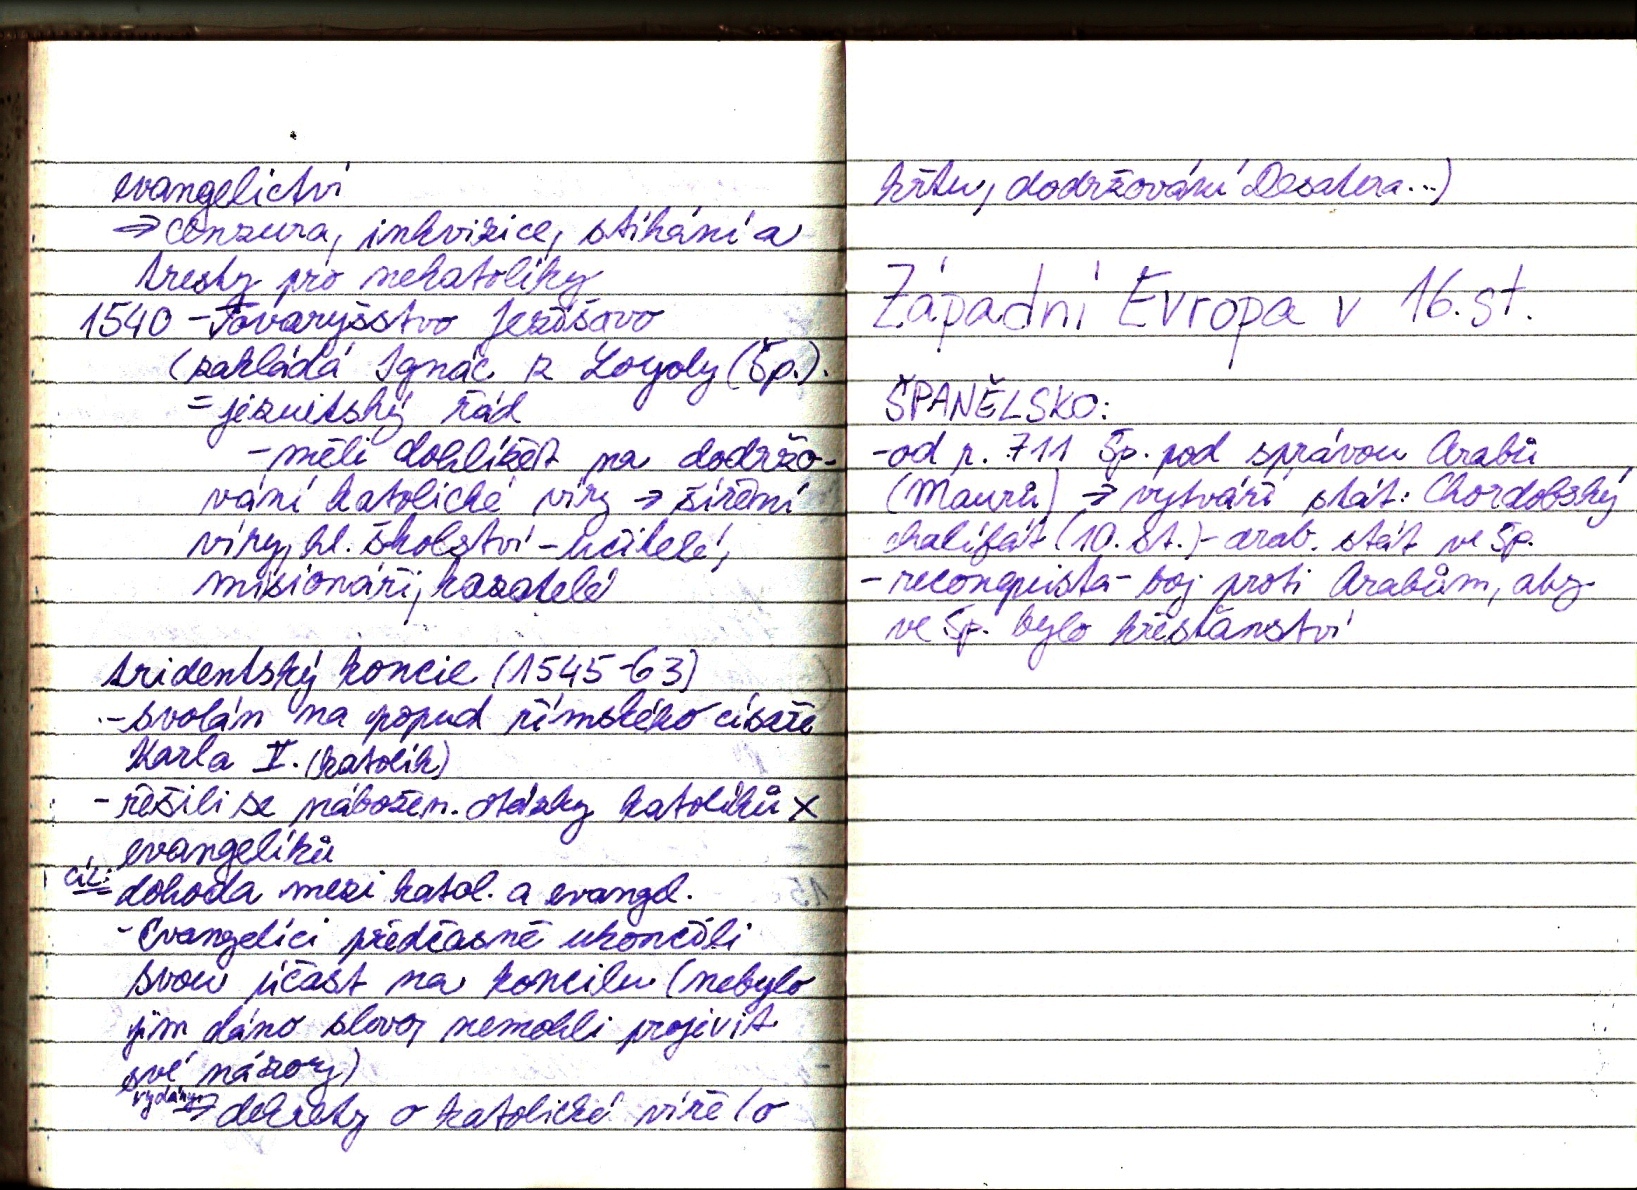 evangelictví
⇒ cenzura, inkvizice, stíhání a
tresty pro nekatolíky
1540 - Tovaryšstvo Ježíšovo
(zakládá Ignác z Loyoly (Šp.).
= jezuitský řád
- měli dohlížet na dodržo-
vání katolické víry → šíření
víry, hl. školství - učitelé,
misionáři, kazatelé
tridentský koncil (1545-63)
- svolán na popud římského císaře
Karla V. (katolík)
- řešili se nábožen. otázky katolíků X
evangelíků
cíl: dohoda mezi katol. a evangel.
- Evangelíci předčasně ukončili
svou účast na koncilu (nebylo
jim dáno slovo, nemohli projevit
své názory)
vydány ⇒ dekrety o katolické víře (o
křtu, dodržování Desatera...)
Západní Evropa v 16. st.
ŠPANĚLSKO:
- od r. 711 Šp. pod správou Arabů
(Maurů) → vytváří stát: Chordobský
chalífát (10. st.) - arab. stát ve Šp.
- reconquista - boj proti Arabům, aby
ve Šp. bylo křesťanství